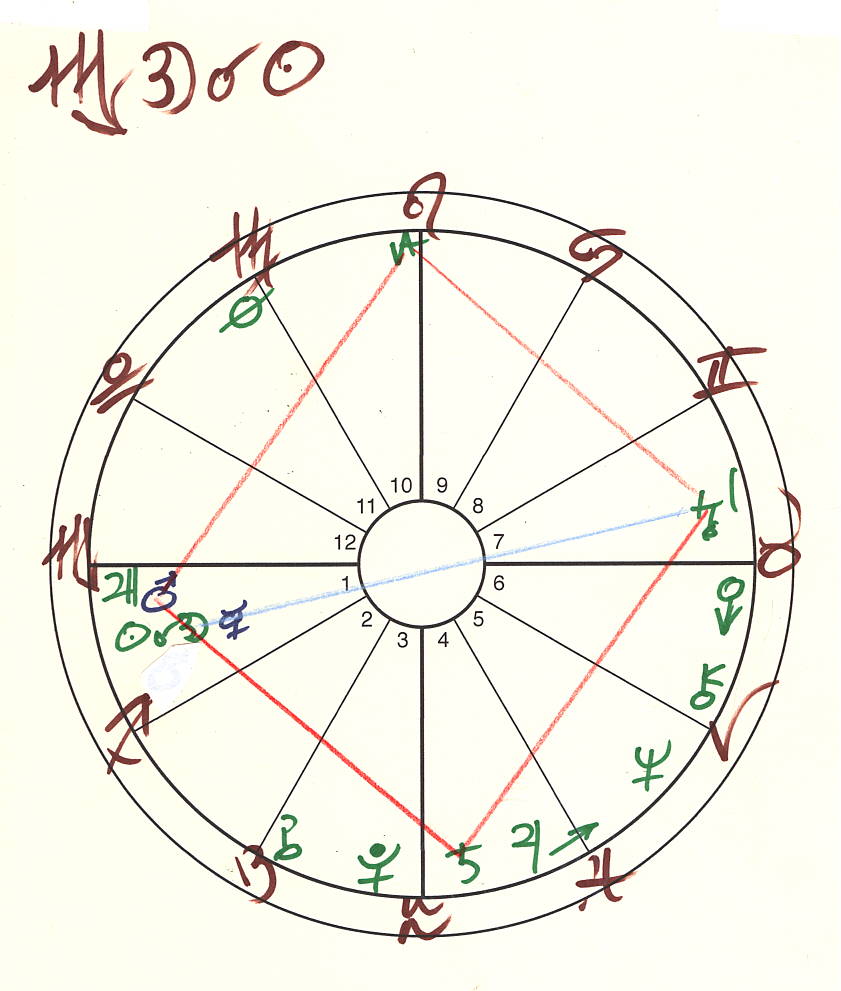 ♏ ☽ ☌ ☉
♌
♍
♋
♊
♎
10 9
11 8
12 7
♏
♉
1 6
♂
☉ ☌ ☽ ☿
2 5
3 4
♐
♈
♆
♃
♑
♓
♒